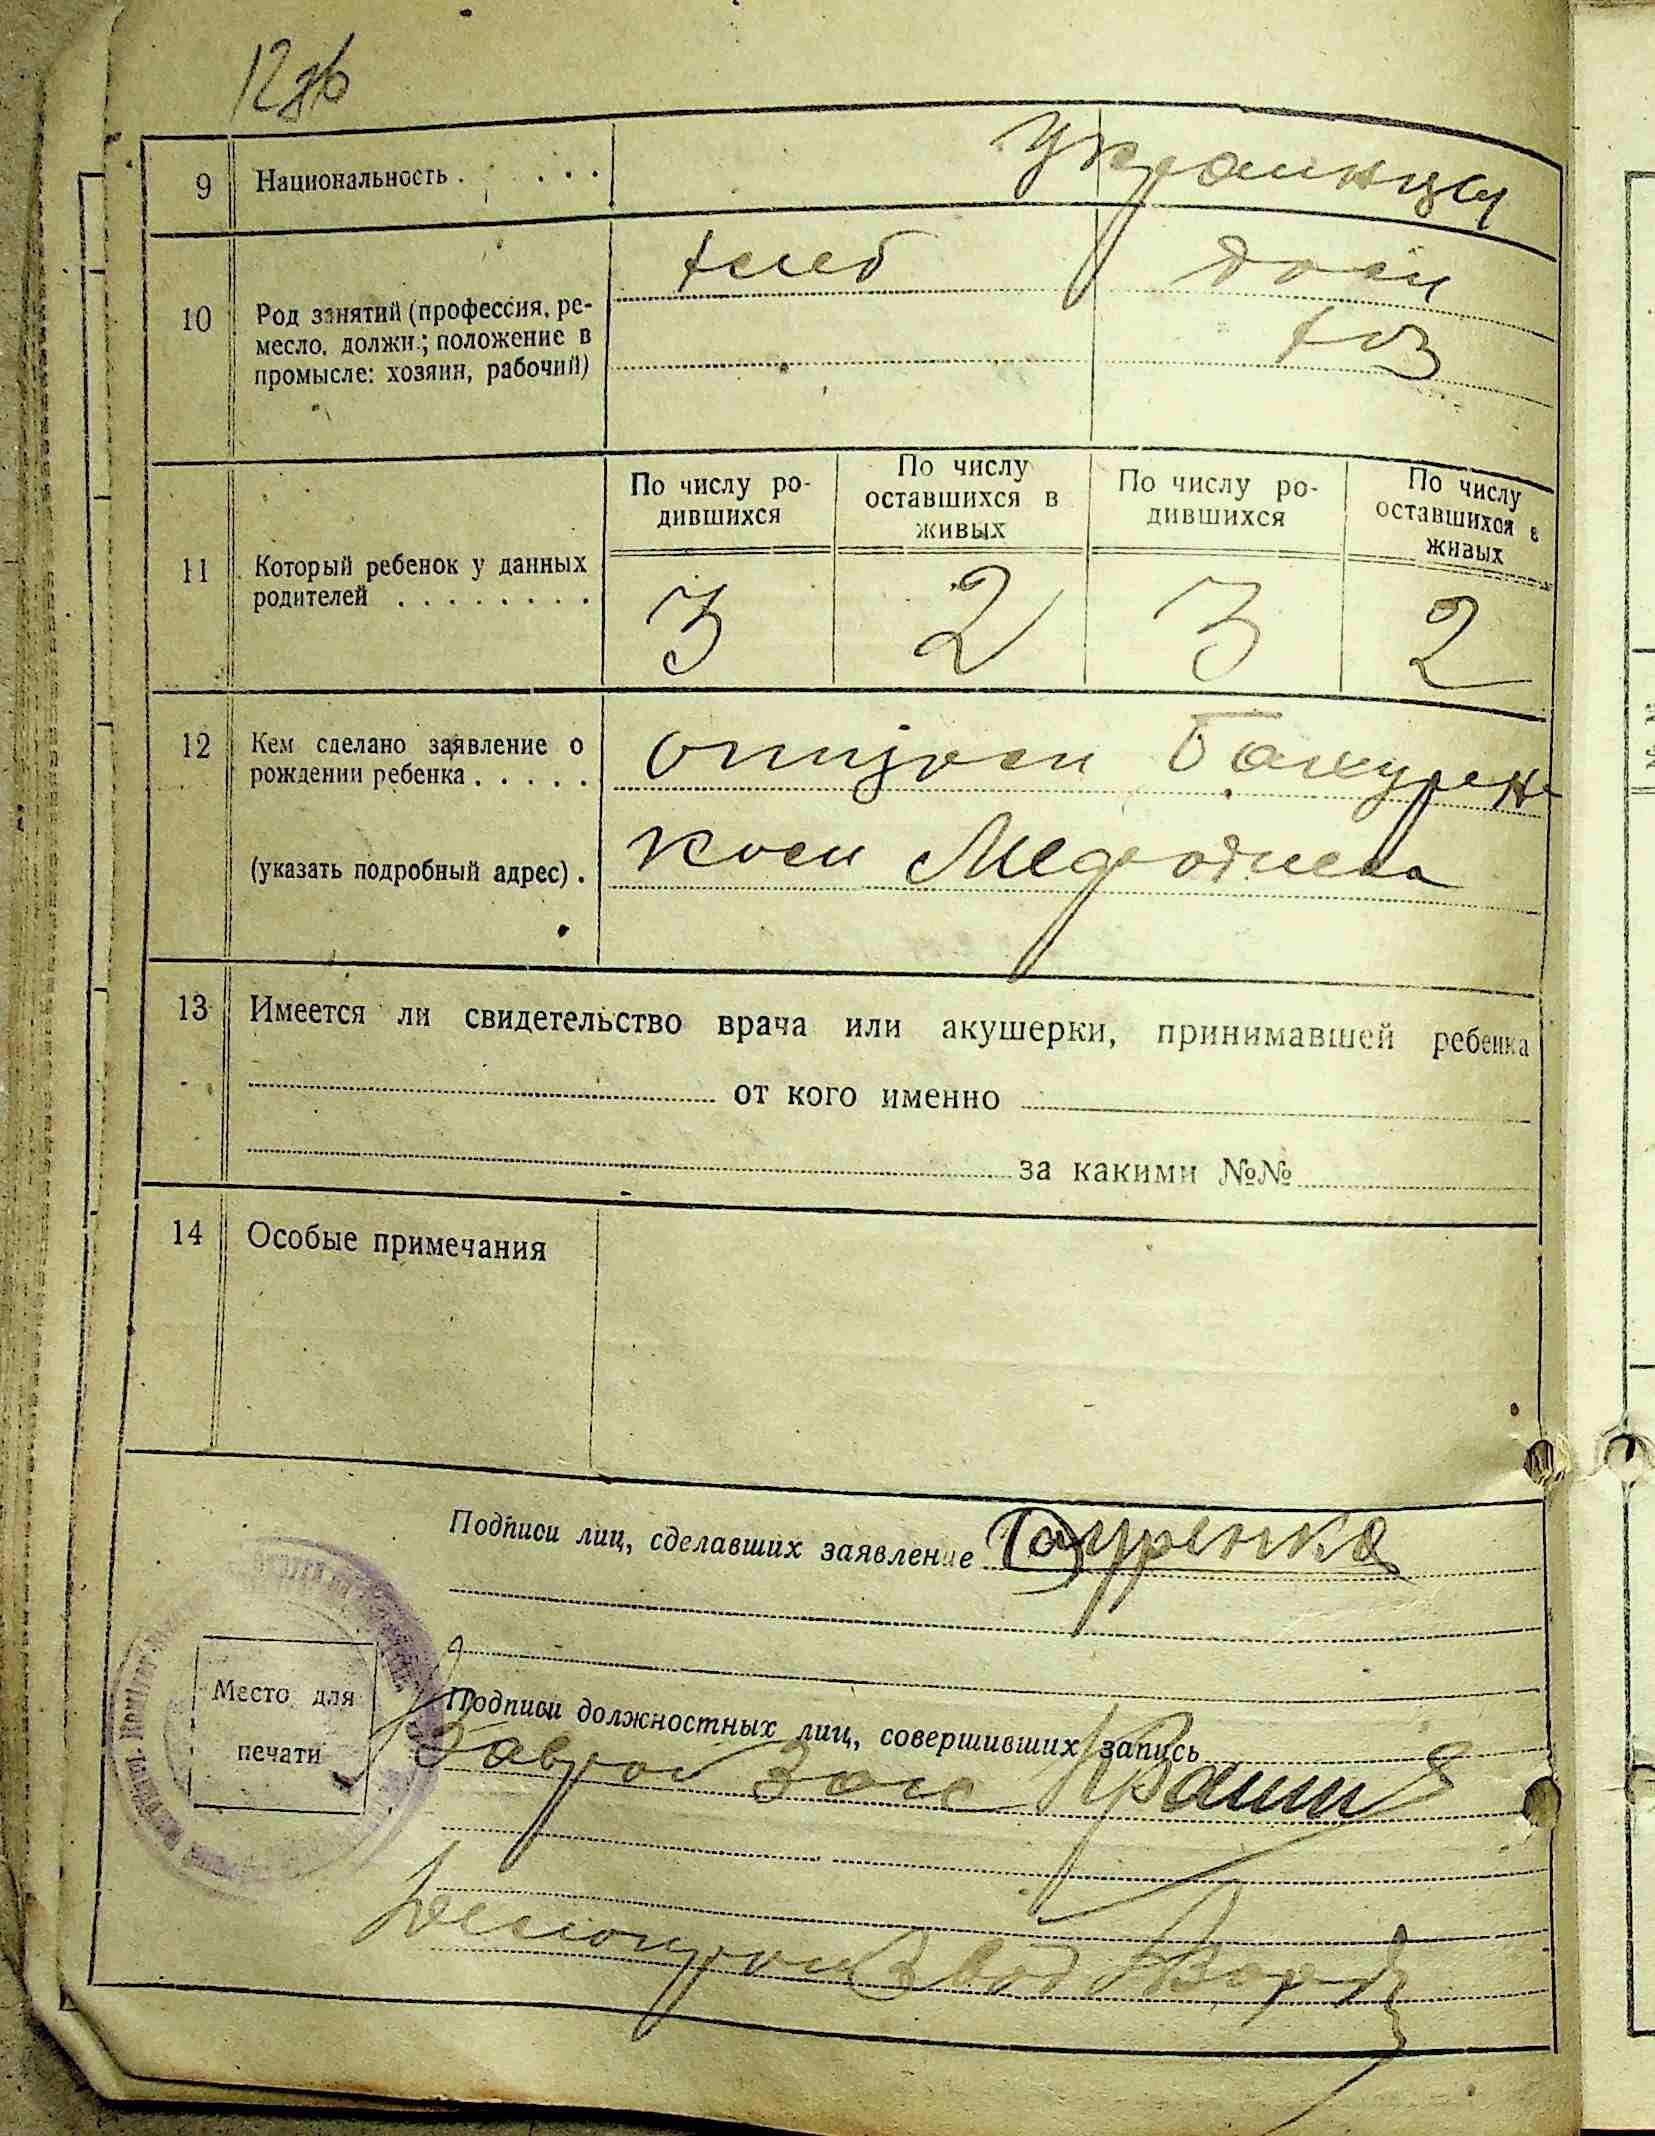 9 Национальность . . . . украинцы
10 Род занятий (профессия, ре-
месло, должн.; положение в
промысле: хозяин, рабочий)
хлеб дом
хоз
11 Который ребенок у данных
родителей . . . . . . . .
По числу ро-
дившихся
По числу
оставшихся в
живых
По числу ро-
дившихся
По числу
оставшихся в
живых
3 2 3 2
12 Кем сделано заявление о
рождении ребенка . . . . .
(указать подробный адрес) .
отцом
13 Имеется ли свидетельство врача или акушерки, принимавшей ребенка
от кого именно
за какими №№
14 Особые примечания
Подписи лиц, сделавших заявление
Место для
печати
Подписи должностных лиц, совершивших запись
Заврай Загс